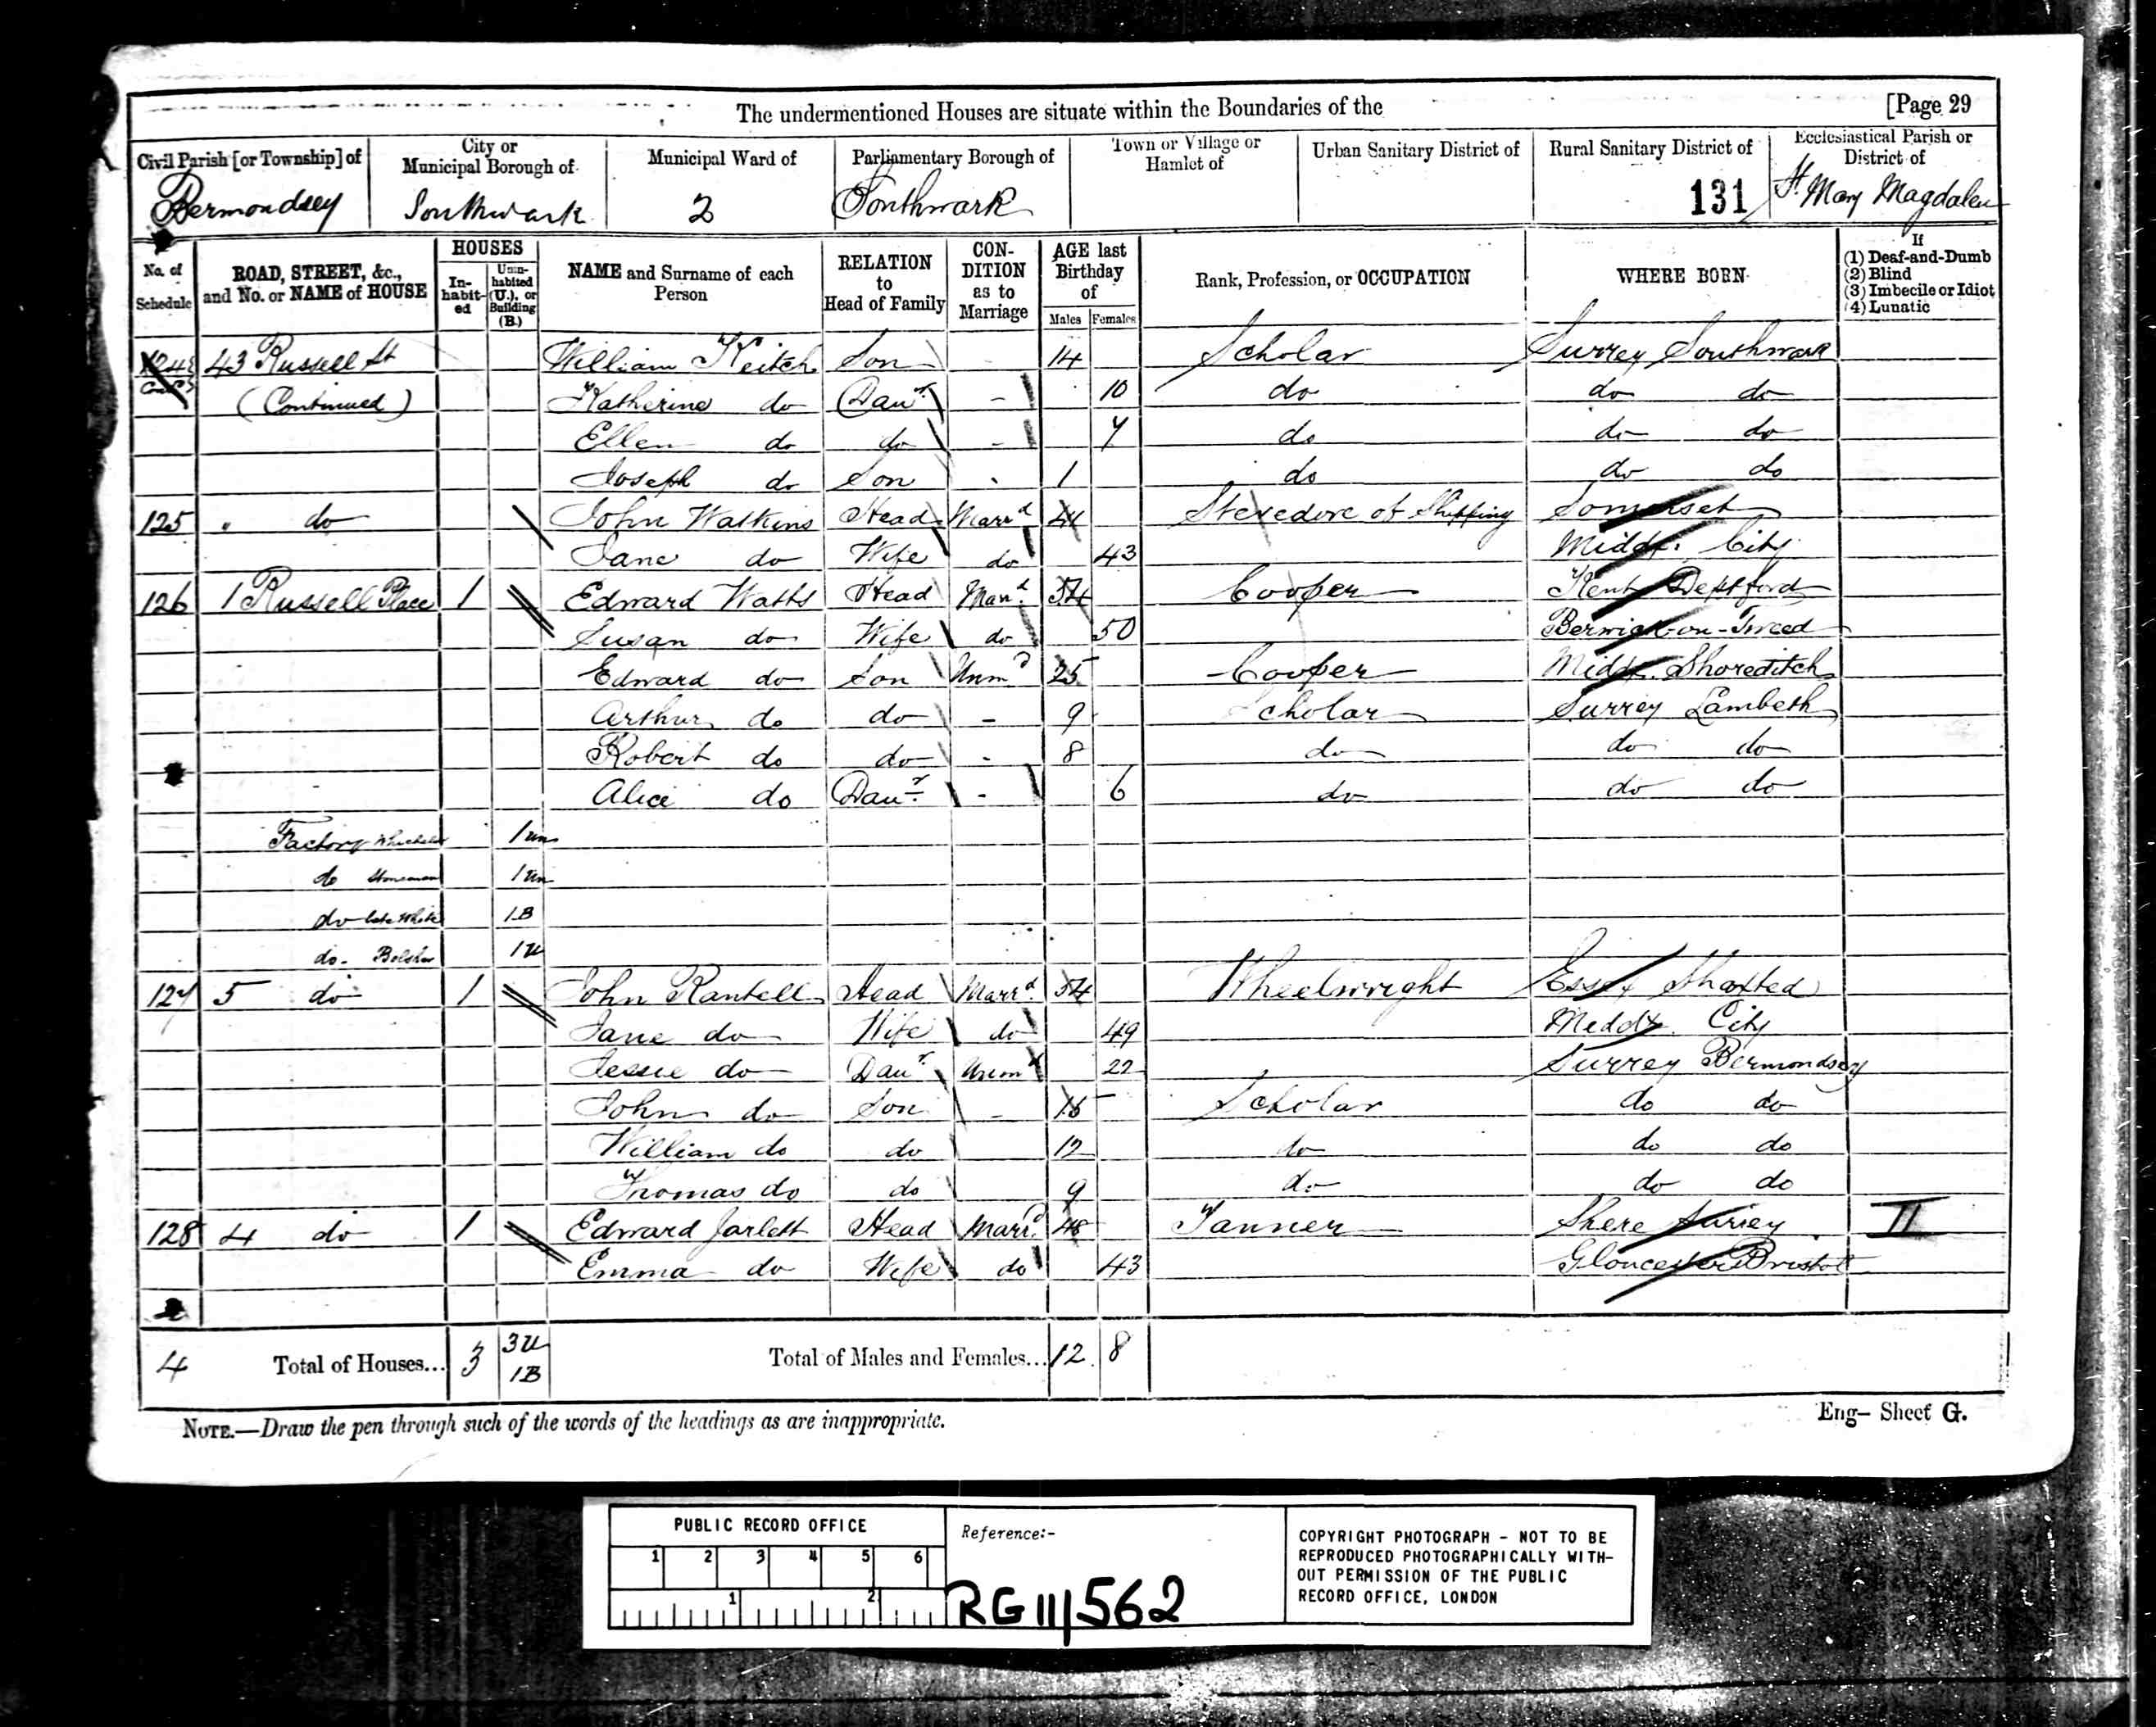 The undermentioned Houses are situate within the Boundaries of the [Page 29
Civil Parish [or Township] of City or Municipal Borough of Municipal Ward of Parliamentary Borough of Town or Village or Hamlet of Urban Sanitary District of Rural Sanitary District of Ecclesiastical Parish or District of
Bermondsey Southwark 2 Southwark 131 St. Mary Magdalen
No. of Schedule ROAD, STREET, &c., and No. or NAME of HOUSE HOUSES Inhabited Uninhabited (U.), or Building (B.) NAME and Surname of each Person RELATION to Head of Family CONDITION as to Marriage AGE last Birthday of Males Females Rank, Profession, or OCCUPATION WHERE BORN If (1) Deaf-and-Dumb (2) Blind (3) Imbecile or Idiot (4) Lunatic
124 43 Russell St William Keitch Son - 14 Scholar Surrey Southwark
(Continued) Katherine do Daur - 10 do do do
Ellen do do - 7 do do do
Joseph do Son - 1 do do do
125 " do John Watkins Head Marrd 41 Stevedore of Shipping Somerset
Jane do Wife do 43 Middx. City
126 1 Russell Place 1 Edward Watts Head Marrd 54 Cooper Kent Deptford
Susan do Wife do 50 Berwick-on-Tweed
Edward do Son Unmd 25 Cooper Middx. Shoreditch
Arthur do do - 9 Scholar Surrey Lambeth
Robert do do - 8 do do do
Alice do Daur - 6 do do do
Factory 1 un
do 1 un
do late White 1B
do 1U
127 5 do 1 John Rantell Head Marrd 54 Wheelwright Essex Thaxted
Jane do Wife do 49 Middx City
Jessie do Daur Unmd 22 Surrey Bermondsey
John do Son - 15 Scholar do do
William do do 12 do do do
Thomas do do 9 do do do
128 4 do 1 Edward Jarlett Head Marrd 48 Tanner Shere Surrey II
Emma do Wife do 43 Gloucester Bristol
4 Total of Houses... 3 3U 1B Total of Males and Females... 12 8
NOTE.—Draw the pen through such of the words of the headings as are inappropriate. Eng- Sheet G.
PUBLIC RECORD OFFICE
1 2 3 4 5 6
1 2
Reference:-
RG 11/562
COPYRIGHT PHOTOGRAPH - NOT TO BE
REPRODUCED PHOTOGRAPHICALLY WITH-
OUT PERMISSION OF THE PUBLIC
RECORD OFFICE, LONDON